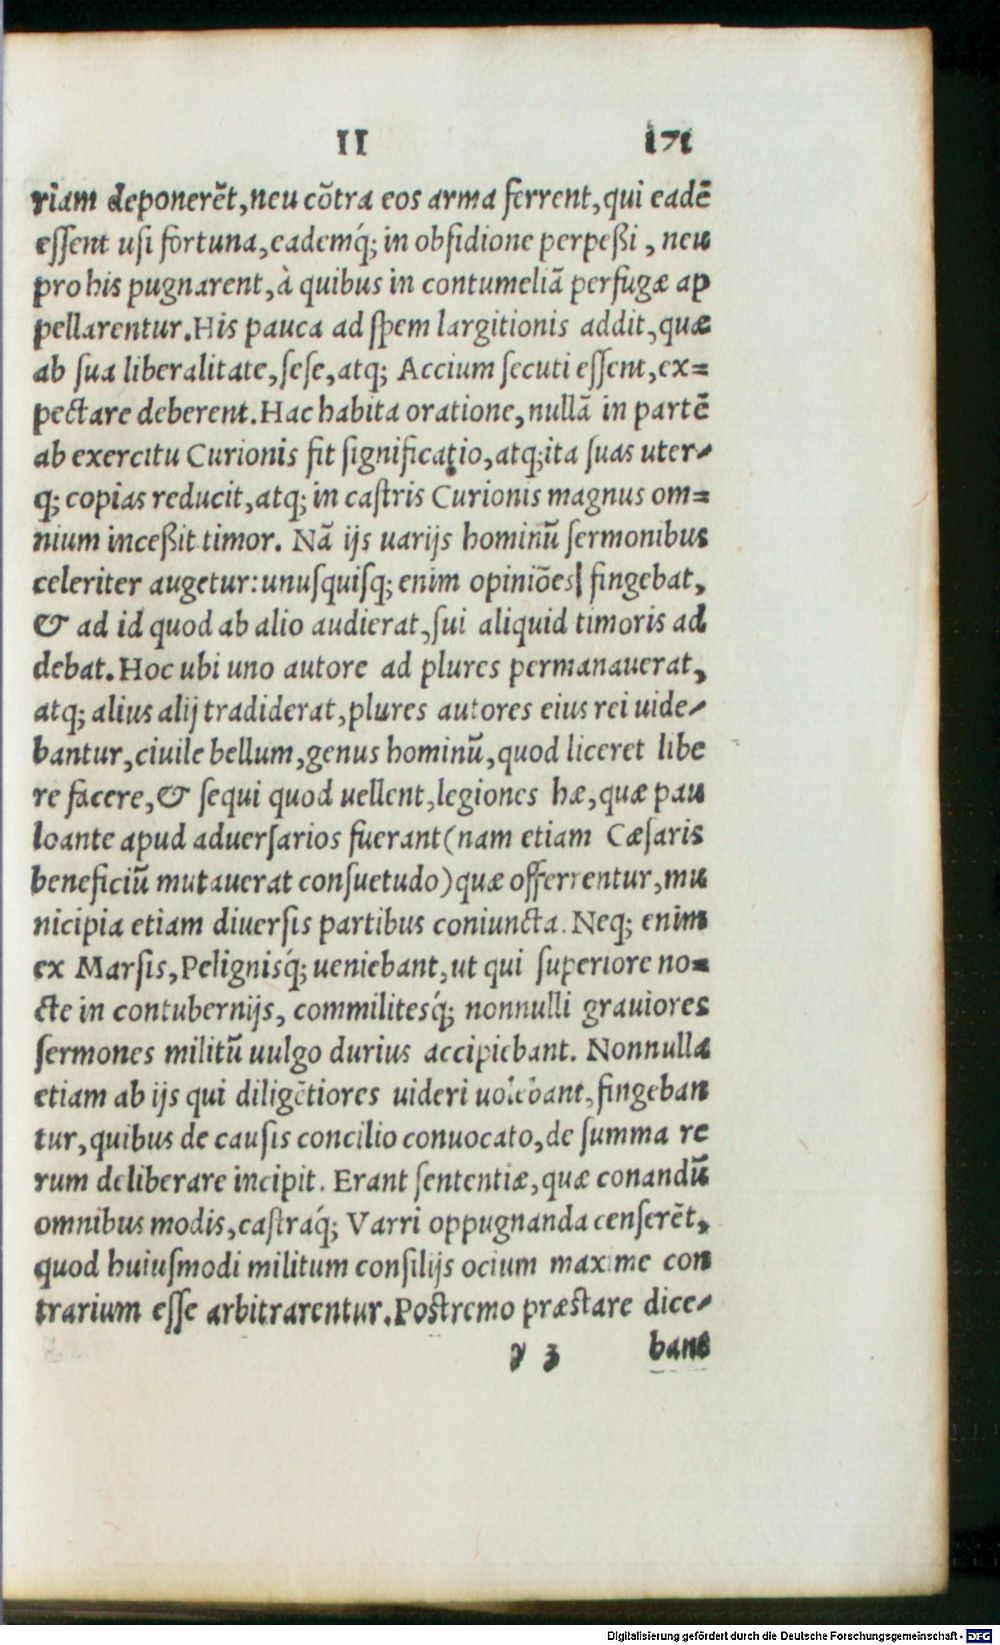 II 171
riam deponerēt, neu cōtra eos arma ferrent, qui eadē
eſſent uſi fortuna, eademq́; in obſidione perpeßi, neu
pro his pugnarent, à quibus in contumeliā perfugæ ap
pellarentur. His pauca ad ſpem largitionis addit, quæ
ab ſua liberalitate, ſeſe, atq; Accium ſecuti eſſent, ex=
pectare deberent. Hac habita oratione, nullā in partē
ab exercitu Curionis fit ſignificatio, atq; ita ſuas uter-
q; copias reducit, atq; in caſtris Curionis magnus om=
nium inceßit timor. Nā ijs uarijs hominū ſermonibus
celeriter augetur: unuſquiſq; enim opiniōes| fingebat,
& ad id quod ab alio audierat, ſui aliquid timoris ad
debat. Hoc ubi uno autore ad plures permanauerat,
atq; alius alij tradiderat, plures autores eius rei uide-
bantur, ciuile bellum, genus hominū, quod liceret libe
re facere, & ſequi quod uellent, legiones hæ, quæ pau
loante apud aduerſarios fuerant (nam etiam Cæſaris
beneficiū mutauerat conſuetudo) quæ offerrentur, mu
nicipia etiam diuerſis partibus coniuncta. Neq; enim
ex Marſis, Pelignisq́; ueniebant, ut qui ſuperiore no=
cte in contubernijs, commilitesq́; nonnulli grauiores
ſermones militū uulgo durius accipiebant. Nonnulla
etiam ab ijs qui diligētiores uideri uolebant, fingeban
tur, quibus de cauſis concilio conuocato, de ſumma re
rum deliberare incipit. Erant ſententiæ, quæ conandū
omnibus modis, caſtraq́; Varri oppugnanda cenſerēt,
quod huiuſmodi militum conſilijs ocium maxime con
trarium eſſe arbitrarentur. Poſtremo præſtare dice-
y 3 bant
Digitalisierung gefördert durch die Deutsche Forschungsgemeinschaft - DFG